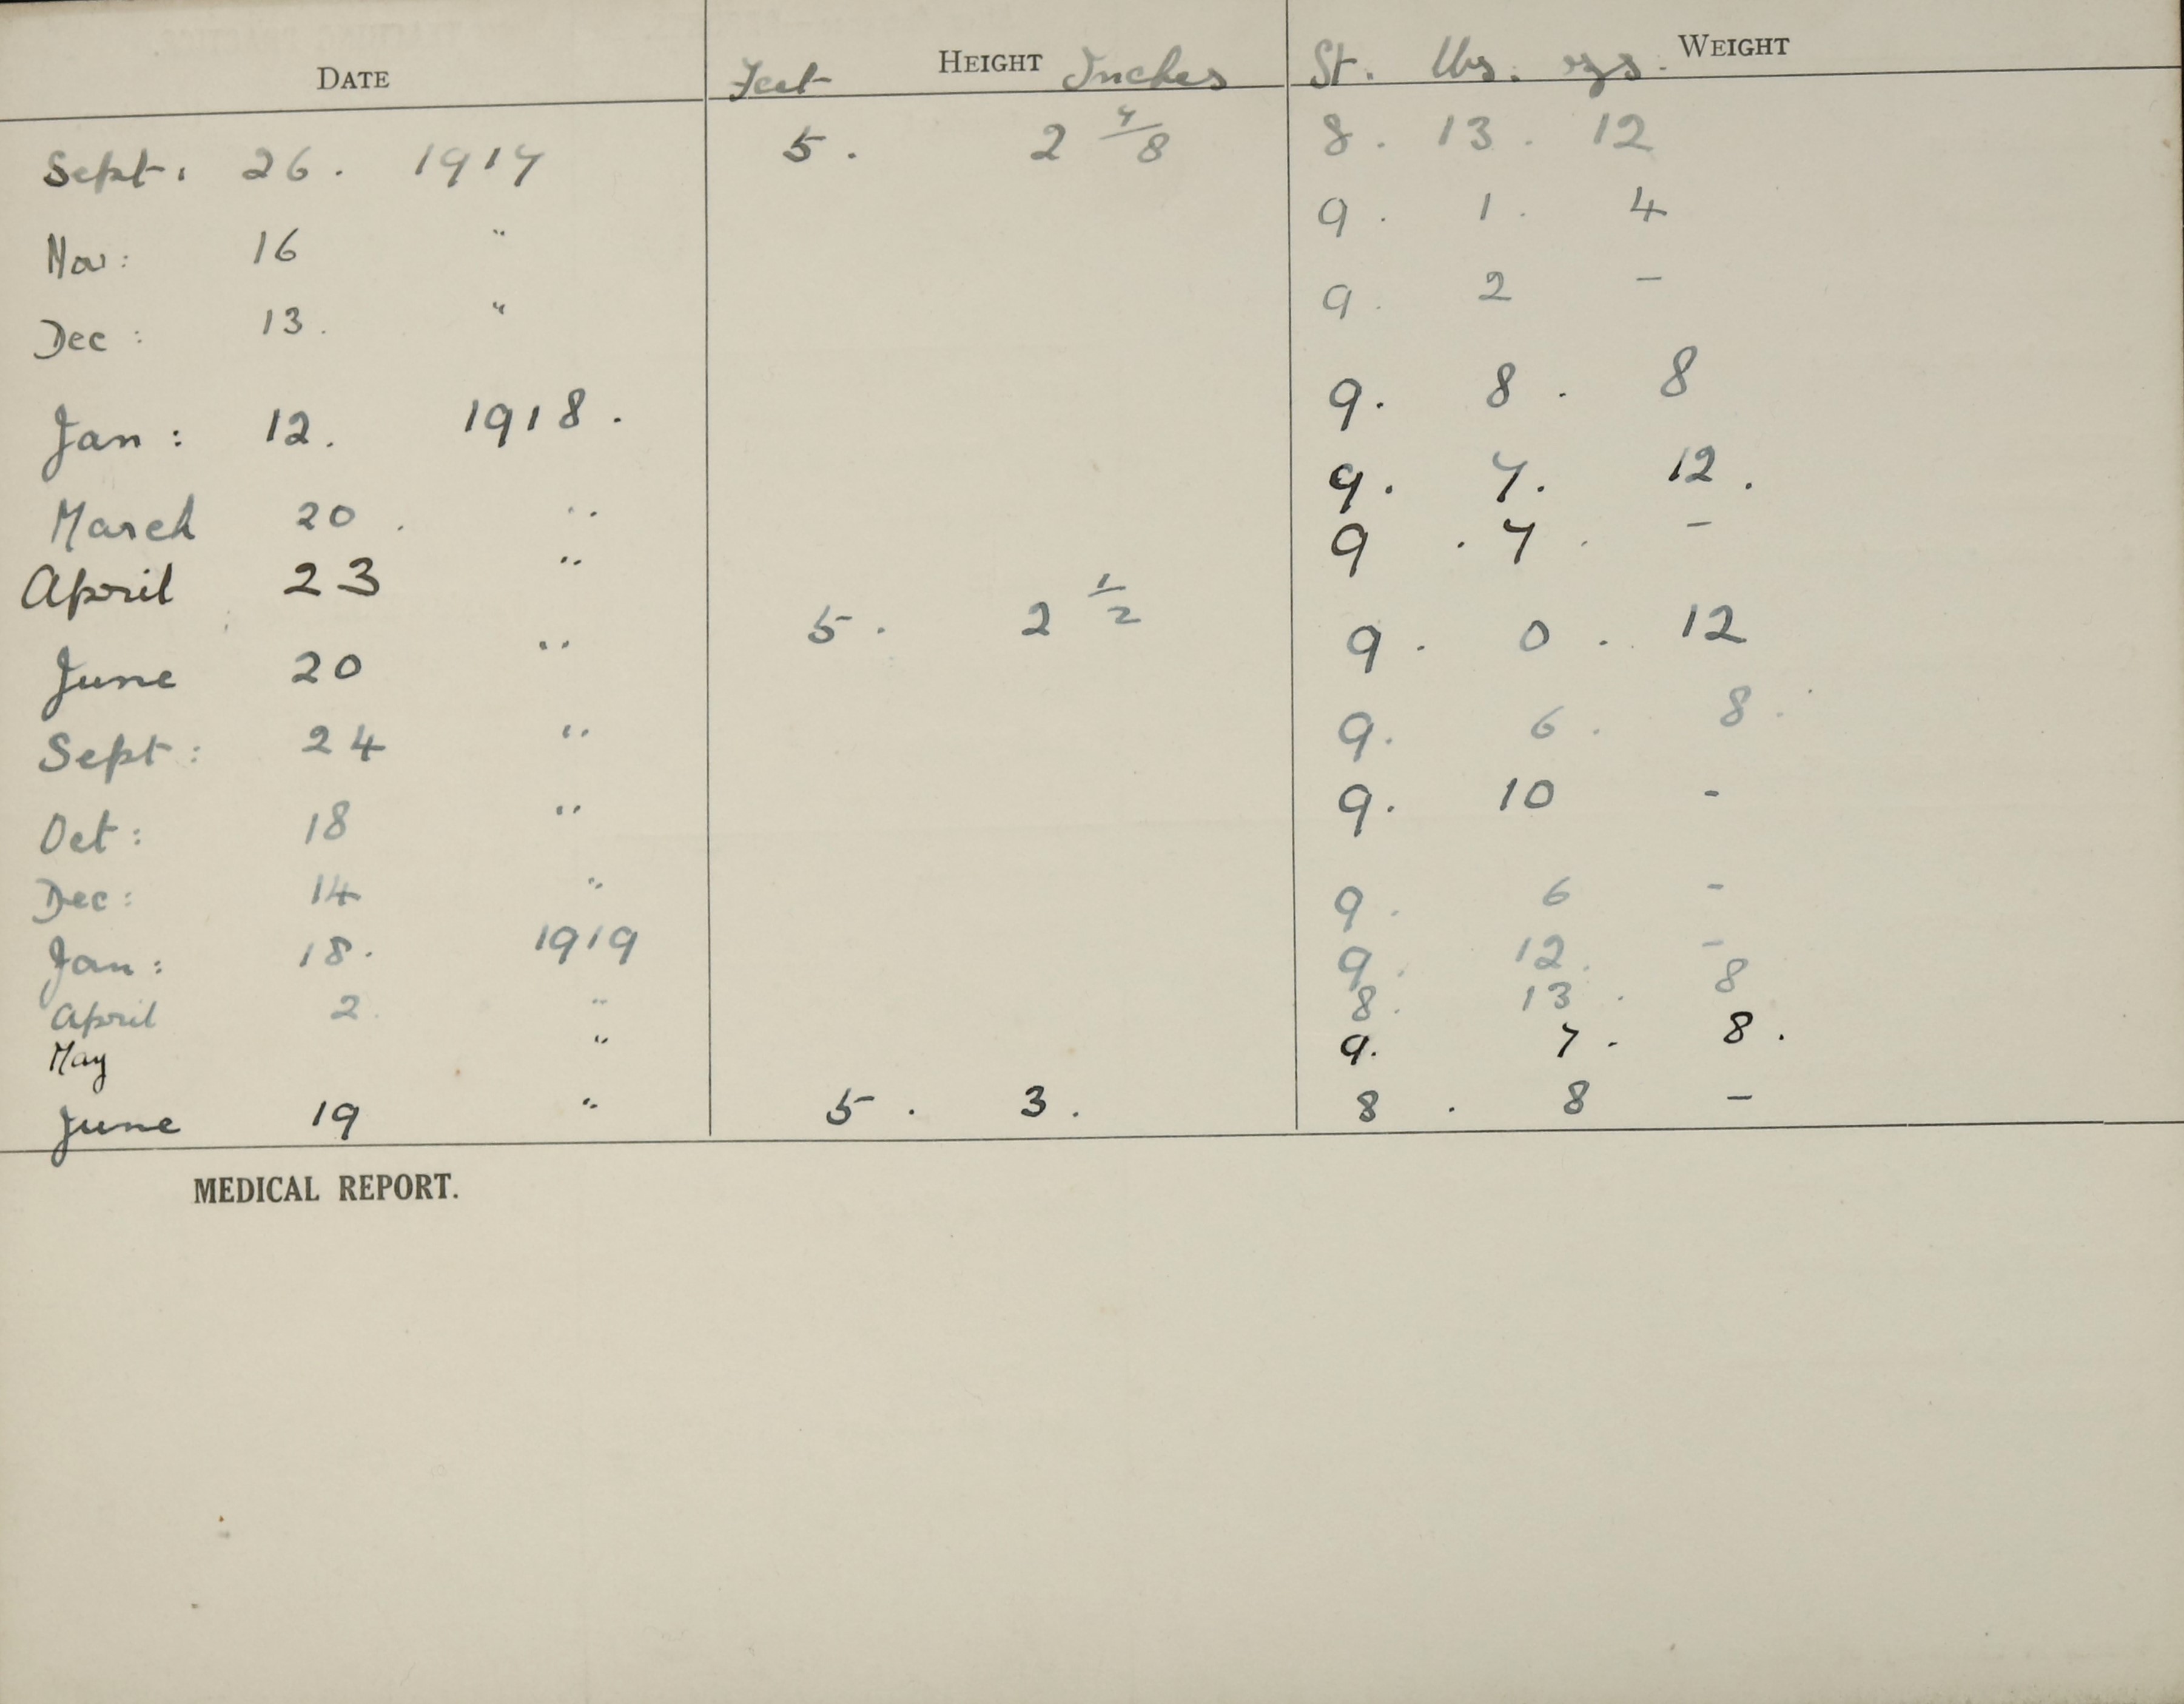 DATE Feet HEIGHT Inches St. lbs. ozs. WEIGHT
Sept: 26. 1917 5. 2 7/8 8. 13. 12
Nov: 16 " 9. 1. 4
Dec: 13. " 9. 2 -
Jan: 12. 1918. 9. 8. 8
March 20. " 9. 7. 12.
April 23 " 9. 7. -
June 20 " 5. 2 1/2 9. 0. 12
Sept: 24 " 9. 6. 8.
Oct: 18 " 9. 10 -
Dec: 14 " 9. 6 -
Jan: 18. 1919 9. 12. -
April 2. " 8. 13. 8
May " 9. 7. 8.
June 19 " 5. 3. 8. 8 -
MEDICAL REPORT.